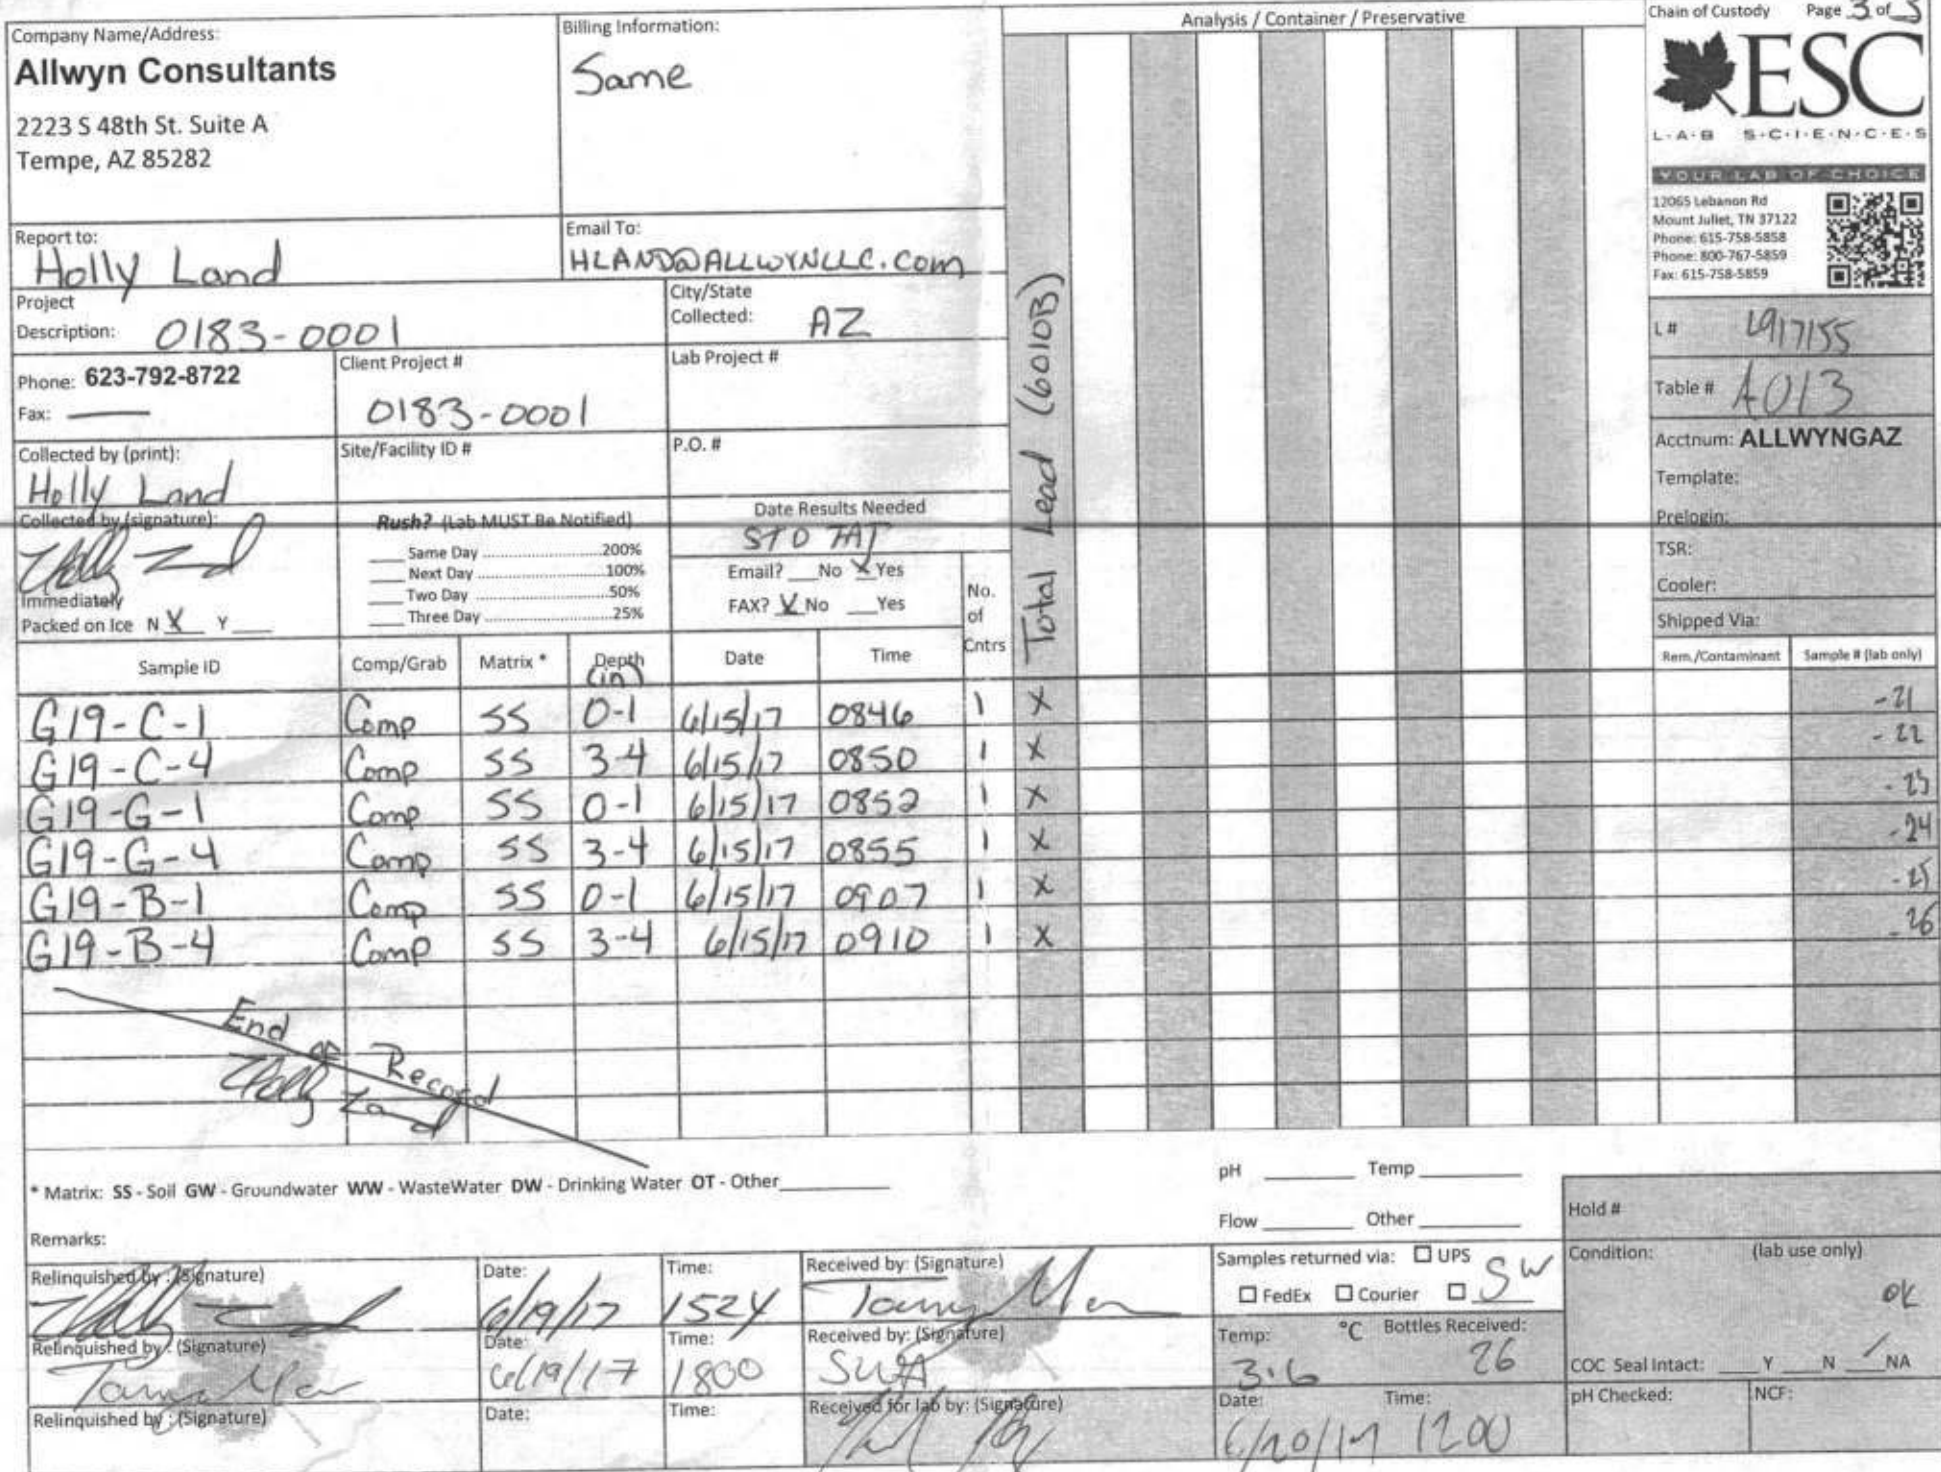 Company Name/Address:
Allwyn Consultants
2223 S 48th St. Suite A
Tempe, AZ 85282
Billing Information:
Same
Analysis / Container / Preservative
Chain of Custody Page 3 of 3
ESC
L·A·B S·C·I·E·N·C·E·S
YOUR LAB OF CHOICE
12065 Lebanon Rd
Mount Juliet, TN 37122
Phone: 615-758-5858
Phone: 800-767-5859
Fax: 615-758-5859
Report to:
Holly Land
Email To:
HLAND@ALLWYNLLC.com
Project
Description: 0183-0001
City/State
Collected: AZ
L # L917155
Phone: 623-792-8722
Fax: —
Client Project #
0183-0001
Lab Project #
Table # A013
Collected by (print):
Holly Land
Site/Facility ID #
P.O. #
Acctnum: ALLWYNGAZ
Template:
Prelogin:
TSR:
Cooler:
Shipped Via:
Collected by (signature):
Holly Land
Immediately
Packed on Ice N X Y
Rush? (Lab MUST Be Notified)
Same Day 200%
Next Day 100%
Two Day 50%
Three Day 25%
Date Results Needed
STD TAT
Email? No X Yes
FAX? X No Yes
No.
of
Cntrs
Total Lead (6010B)
Sample ID Comp/Grab Matrix * Depth (in) Date Time Rem./Contaminant Sample # (lab only)
G19-C-1 Comp SS 0-1 6/15/17 0846 1 X -21
G19-C-4 Comp SS 3-4 6/15/17 0850 1 X -22
G19-G-1 Comp SS 0-1 6/15/17 0852 1 X -23
G19-G-4 Comp SS 3-4 6/15/17 0855 1 X -24
G19-B-1 Comp SS 0-1 6/15/17 0907 1 X -25
G19-B-4 Comp SS 3-4 6/15/17 0910 1 X -26
End of Record
Holly Land
* Matrix: SS - Soil GW - Groundwater WW - WasteWater DW - Drinking Water OT - Other
pH Temp
Flow Other
Remarks:
Hold #
Relinquished by : (Signature)
Holly Land
Date:
6/19/17
Time:
1524
Received by: (Signature)
Samples returned via: UPS
FedEx Courier SW
Condition: (lab use only)
OK
Relinquished by : (Signature)
Date:
6/19/17
Time:
1800
Received by: (Signature)
SWA
Temp: °C
3.6
Bottles Received:
26
COC Seal Intact: Y N / NA
Relinquished by : (Signature)
Date:
Time:
Received for lab by: (Signature)
Date:
6/20/17
Time:
1200
pH Checked:
NCF: